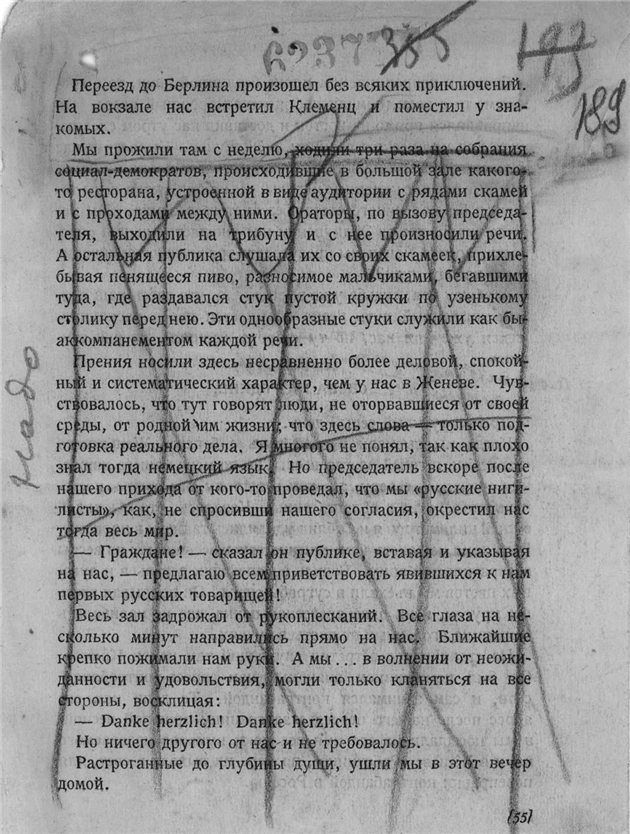 6237
385
193
189
Переезд до Берлина произошел без всяких приключений.
На вокзале нас встретил Клеменц и поместил у зна-
комых.
Мы прожили там с неделю, ходили три раза на собрания
социал-демократов, происходившие в большой зале какого-
то ресторана, устроенной в виде аудитории с рядами скамей
и с проходами между ними. Ораторы, по вызову председа-
теля, выходили на трибуну и с нее произносили речи.
А остальная публика слушала их со своих скамеек, прихле-
бывая пенящееся пиво, разносимое мальчиками, бегавшими
туда, где раздавался стук пустой кружки по узенькому
столику перед нею. Эти однообразные стуки служили как бы
аккомпанементом каждой речи.
Прения носили здесь несравненно более деловой, спокой-
ный и систематический характер, чем у нас в Женеве. Чув-
ствовалось, что тут говорят люди, не оторвавшиеся от своей
среды, от родной им жизни; что здесь слова — только под-
готовка реального дела. Я многого не понял, так как плохо
знал тогда немецкий язык. Но председатель вскоре после
нашего прихода от кого-то проведал, что мы «русские ниги-
листы», как, не спросивши нашего согласия, окрестил нас
тогда весь мир.
— Граждане! — сказал он публике, вставая и указывая
на нас, — предлагаю всем приветствовать явившихся к нам
первых русских товарищей!
Весь зал задрожал от рукоплесканий. Все глаза на не-
сколько минут направились прямо на нас. Ближайшие
крепко пожимали нам руки. А мы... в волнении от неожи-
данности и удовольствия, могли только кланяться на все
стороны, восклицая:
— Danke herzlich! Danke herzlich!
Но ничего другого от нас и не требовалось.
Растроганные до глубины души, ушли мы в этот вечер
домой.
[55]
Надо